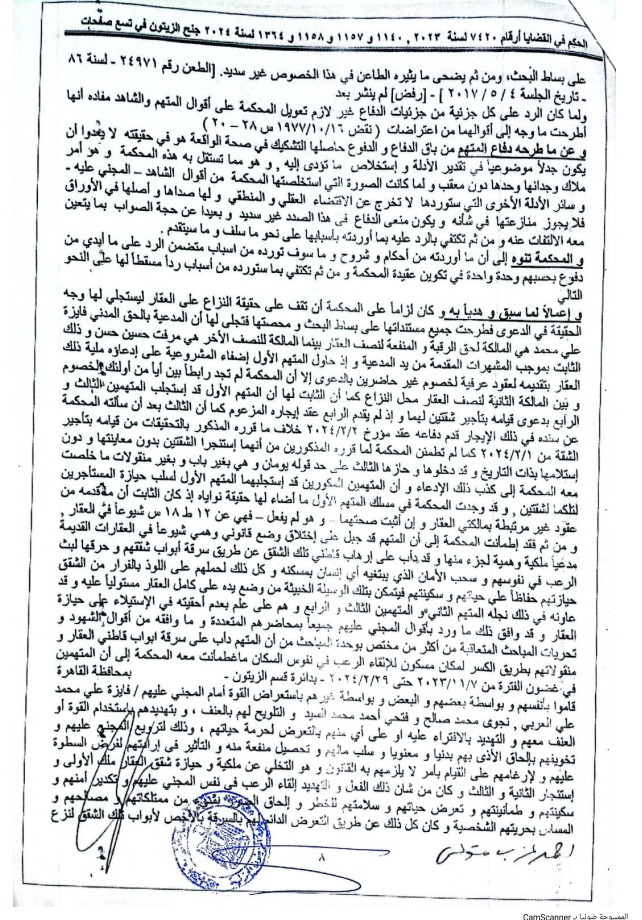 الحكم في القضايا أرقام ٧٤٢٠ لسنة ٢٠٢٣ , ١١٤٠ و ١١٥٧ و ١١٥٨ و ١٣٦٤ لسنة ٢٠٢٤ جنح الزيتون في تسع صفحات
على بساط البحث، ومن ثم يضحى ما يثيره الطاعن في هذا الخصوص غير سديد. [الطعن رقم ٢٤٩٧١ - لسنة ٨٦
- تاريخ الجلسة ٤ / ٥ / ٢٠١٧ ] - [رفض] لم ينشر بعد
ولما كان الرد على كل جزئية من جزئيات الدفاع غير لازم تعويل المحكمة على أقوال المتهم والشاهد مفاده أنها
أطرحت ما وجه إلى أقوالهما من اعتراضات ( نقض ١٩٧٧/١٠/١٦ س ٢٨ – ٢٠ )
و عن ما طرحه دفاع المتهم من باق الدفاع و الدفوع حاصلها التشكيك في صحة الواقعة هو في حقيقته لا يعدوا أن
يكون جدلاً موضوعياً في تقدير الأدلة و إستخلاص ما تؤدى إليه , و هو مما تستقل به هذه المحكمة و هو أمر
ملاك وجدانها وحدها دون معقب و لما كانت الصورة التي استخلصتها المحكمة من أقوال الشاهد – المجني عليه -
و سائر الأدلة الأخرى التي ستوردها لا تخرج عن الاقتضاء العقلي و المنطقي و لها صداها و أصلها في الأوراق
فلا يجوز منازعتها في شأنه و يكون منعى الدفاع في هذا الصدد غير سديد و بعيدا عن حجة الصواب بما يتعين
معه الالتفات عنه و من ثم تكتفي بالرد عليه بما أوردته بأسبابها على نحو ما سلف و ما سيتقدم .
و المحكمة تنوه إلى أن ما أوردته من أحكام و شروح و ما سوف تورده من اسباب متضمن الرد على ما أبدي من
دفوع بحسبهم وحدة واحدة في تكوين عقيدة المحكمة و من ثم تكتفي بما ستورده من أسباب رداً مسقطاً لها على النحو
التالي
و إعمالاً لما سبق و هدياً به و كان لزاماً على المحكمة أن تقف على حقيقة النزاع على العقار ليستجلي لها وجه
الحقيقة في الدعوى فطرحت جميع مستنداتها على بساط البحث و محصتها فتجلى لها أن المدعية بالحق المدني فايزة
علي محمد هي المالكة لحق الرقبة و المنفعة لنصف العقار بينما المالكة للنصف الأخر هي مرفت حسين حسن و ذلك
الثابت بموجب المشهرات المقدمة من يد المدعية و إذ حاول المتهم الأول إضفاء المشروعية على إدعاؤه ملية ذلك
العقار بتقديمه لعقود عرفية لخصوم غير حاضرين بالدعوى إلا أن المحكمة لم تجد رابطاً بين أياً من أولئك الخصوم
و بين المالكة الثانية لنصف العقار محل النزاع كما أن الثابت لها أن المتهم الأول قد إستجلب المتهمين الثالث و
الرابع بدعوى قيامه بتأجير شقتين لهما و إذ لم يقدم الرابع عقد إيجاره المزعوم كما أن الثالث بعد أن سألته المحكمة
عن سنده في ذلك الإيجار قدم دفاعه عقد مؤرخ ٢٠٢٤/٢/٢ خلاف ما قرره المذكور بالتحقيقات من قيامه بتأجير
الشقة من ٢٠٢٤/٢/١ كما لم تطمئن المحكمة لما قرره المذكورين من أنهما إستنجرا الشقتين بدون معاينتها و دون
إستلامها بذات التاريخ و قد دخلوها و حازها الثالث على حد قوله يومان و هي بغير باب و بغير منقولات ما خلصت
معه المحكمة إلى كذب ذلك الإدعاء و أن المتهمين المذكورين قد إستجلبهما المتهم الأول لسلب حيازة المستأجرين
لتلكما لشقتين , و قد وجدت المحكمة في مسلك المتهم الأول ما أضاء لها حقيقة نواياه إذ كان الثابت أن ما قدمه من
عقود غير مرتبطة بمالكتي العقار و إن أثبت صحتهما – و هو لم يفعل – فهي عن ١٢ ط ١٨ س شيوعاً في العقار ,
و من ثم فقد اطمأنت المحكمة إلى أن المتهم قد جبل على إختلاق وضع قانوني وهمي شيوعاً في العقارات القديمة
مدعياً ملكية وهمية لجزء منها و قد دأب على إرهاب قاطني تلك الشقق عن طريق سرقة أبواب شققهم و حرقها لبث
الرعب في نفوسهم و سحب الأمان الذي يبتغيه أي إنسان بمسكنه و كل ذلك لحملهم على اللوذ بالفرار من الشقق
حيازتهم حفاظاً على حياتهم و سكينتهم فيتمكن بتلك الوسيلة الخبيثة من وضع يده على كامل العقار مستولياً عليه و قد
عاونه في ذلك نجله المتهم الثاني و المتهمين الثالث و الرابع و هم على علم بعدم أحقيته في الإستيلاء على حيازة
العقار و قد وافق ذلك ما ورد بأقوال المجني عليهم جميعاً بمحاضرهم المتعددة و ما وافقه من أقوال الشهود و
تحريات المباحث المتعاقبة من أكثر من مختص بوحدة المباحث من أن المتهم دأب على سرقة ابواب قاطني العقار و
منقولاتهم بطريق الكسر لمكان مسكون للإلقاء الرعب في نفوس السكان ماطمأنت معه المحكمة إلى أن المتهمين
في غضون الفترة من ٢٠٢٣/١١/٧ حتى ٢٠٢٤/٢/٢٩ - بدائرة قسم الزيتون - بمحافظة القاهرة
قاموا بأنفسهم و بواسطة بعضهم و البعض و بواسطة غيرهم باستعراض القوة أمام المجني عليهم / فايزة علي محمد
علي العربي , نجوى محمد صالح و فتحي أحمد محمد السيد و التلويح لهم بالعنف ، و بتهديدهم باستخدام القوة أو
العنف معهم و التهديد بالافتراء عليه او على أي منهم بالتعرض لحرمة حياتهم ، وذلك لترويع المجني عليهم و
تخويفهم بإلحاق الأذى بهم بدنيا و معنويا و سلب مالهم و تحصيل منفعة منه و التأثير فى إرادتهم لفرض السطوة
عليهم و لإرغامهم على القيام بأمر لا يلزمهم به القانون و هو التخلي عن ملكية و حيازة شقق العقار ملك الأولى و
إستئجار الثانية و الثالث و كان من شان ذلك الفعل و التهديد إلقاء الرعب في نفس المجني عليهم و تكدير أمنهم و
سكينتهم و طمأنينتهم و تعرض حياتهم و سلامتهم للخطر و إلحاق الضرر من ممتلكاتهم و مصالحهم و
المساس بحريتهم الشخصية و كان كل ذلك عن طريق التعرض الدائم لهم بالسرقة بالأخص لأبواب تلك الشقق لنزع
٨
الممسوحة ضوئيا بـ CamScanner